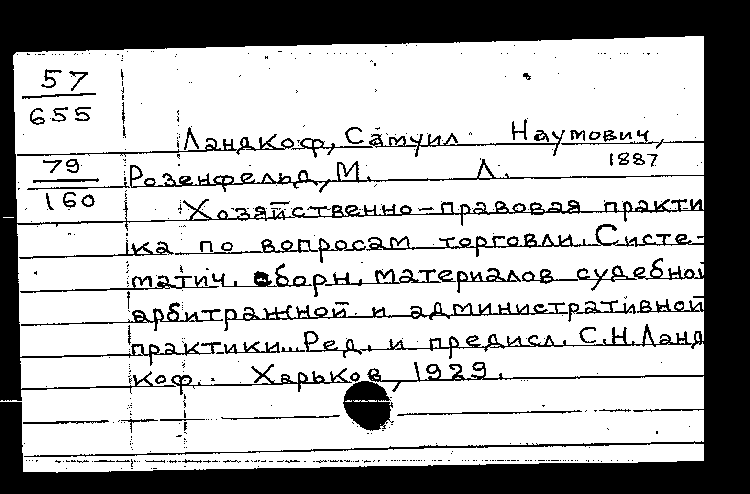 57
655
Ландкоф, Самуил Наумович,
1887
79
160
Розенфельд, М. Л.
Хозяйственно-правовая практи
ка по вопросам торговли. Систе-
матич. сборн. материалов судебной
арбитражной и административной
практики... Ред. и предисл. С.Н. Ланд
коф. Харьков, 1929.